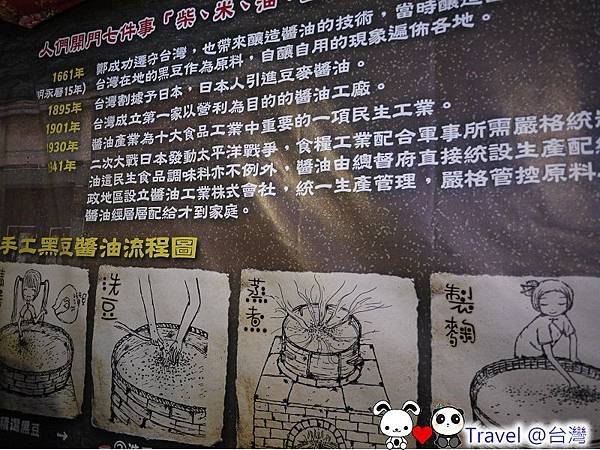 人們開門七件事「柴、米、油、
1661年 鄭成功遵守台灣，也帶來釀造醬油的技術，當時釀造
(明永曆15年) 台灣在地的黑豆作為原料，自釀自用的現象遍佈各地。
1895年 台灣割據予日本，日本人引進豆麥醬油。
1901年 台灣成立第一家以營利為目的的醬油工廠。
1930年 醬油產業為十大食品工業中重要的一項民生工業。
941年 二次大戰日本發動太平洋戰爭，食糧工業配合軍事所需嚴格統
油這民生食品調味料亦不例外，醬油由總督府直接統設生產配
政地區設立醬油工業株式會社，統一生產管理，嚴格管控原料
醬油經層層配給才到家庭。
手工黑豆醬油流程圖
洗豆
蒸煮
製麴
精選黑豆 →
Travel @台灣